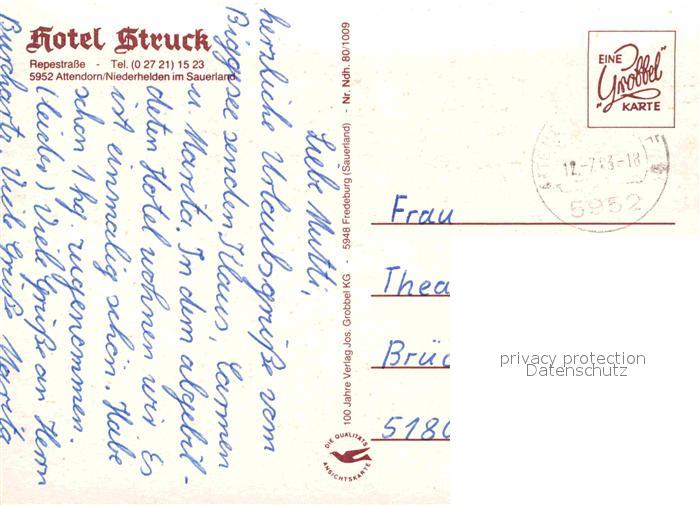 Hotel Struck
Repestraße - Tel. (0 27 21) 15 23
5952 Attendorn/Niederhelden im Sauerland
Liebe Mutti,
herzliche Urlaubsgrüße vom
Biggesee senden Klaus, Carmen
u. Marita. In dem abgebil-
deten Hotel wohnen wir. Es
ist einmalig schön. Habe
schon 1 kg zugenommen.
(leider) Viele Grüße an Herrn
Burchartz. Viele Grüße Marita
100 Jahre Verlag Jos. Grobbel KG - 5948 Fredeburg (Sauerland) - Nr. Ndh. 80/1009
DIE QUALITÄTS
ANSICHTSKARTE
EINE
"Grobbel"
KARTE
12.-7.83-18
5952
Frau
Thea
Brüc
5180
privacy protection
Datenschutz